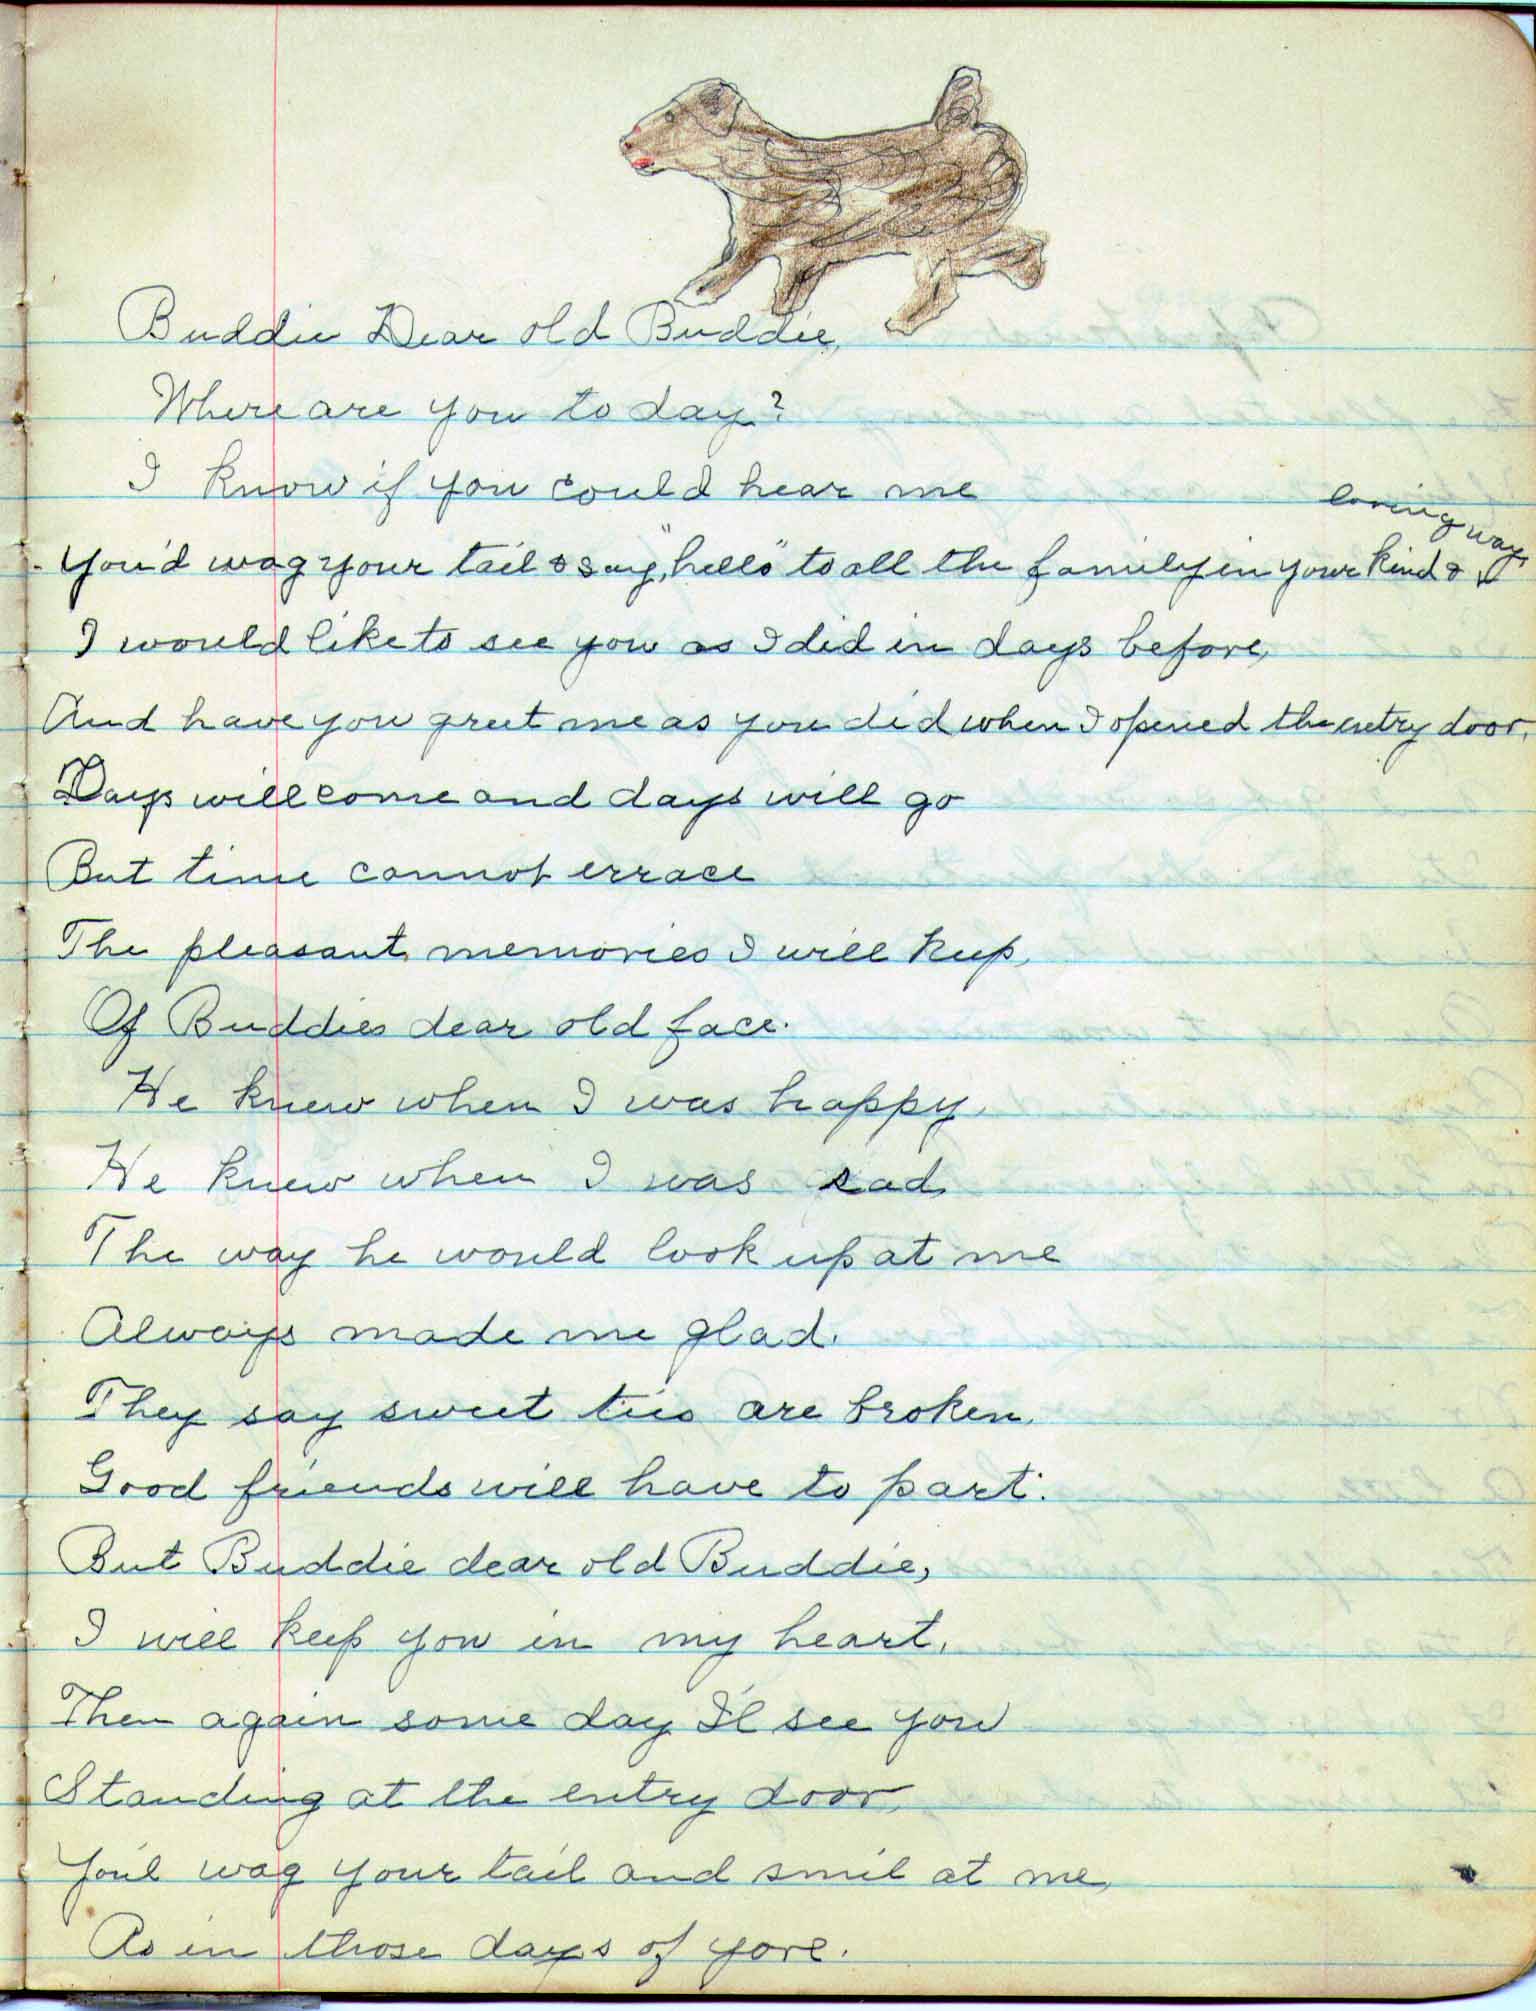 Buddie Dear old Buddie,
Where are you to day?
I know if you could hear me
You'd wag your tail & say, "hello" to all the family in your kind & loving way,
I would like to see you as I did in days before,
And have you greet me as you did when I opened the entry door,
Days will come and days will go
But time cannot errace
The pleasant memories I will keep,
Of Buddies dear old face.
He knew when I was happy,
He knew when I was sad,
The way he would look up at me
Always made me glad.
They say sweet ties are broken,
Good friends will have to part.
But Buddie dear old Buddie,
I will keep you in my heart.
Then again some day I'l see you
Standing at the entry door,
You'l wag your tail and smil at me,
As in those days of yore.